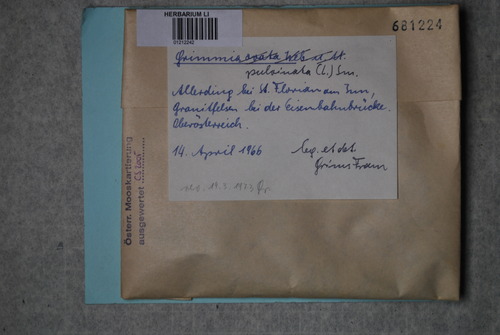 HERBARIUM LI
01212242
681224
Grimmia ovata Web. et M.
pulvinata (L.) Sm.
Allerding bei St. Florian am Inn,
Granitfelsen bei der Eisenbahnbrücke.
Oberösterreich.
14. April 1966
leg. et det.
Grims Franz
Österr. Mooskartierung
ausgewertet